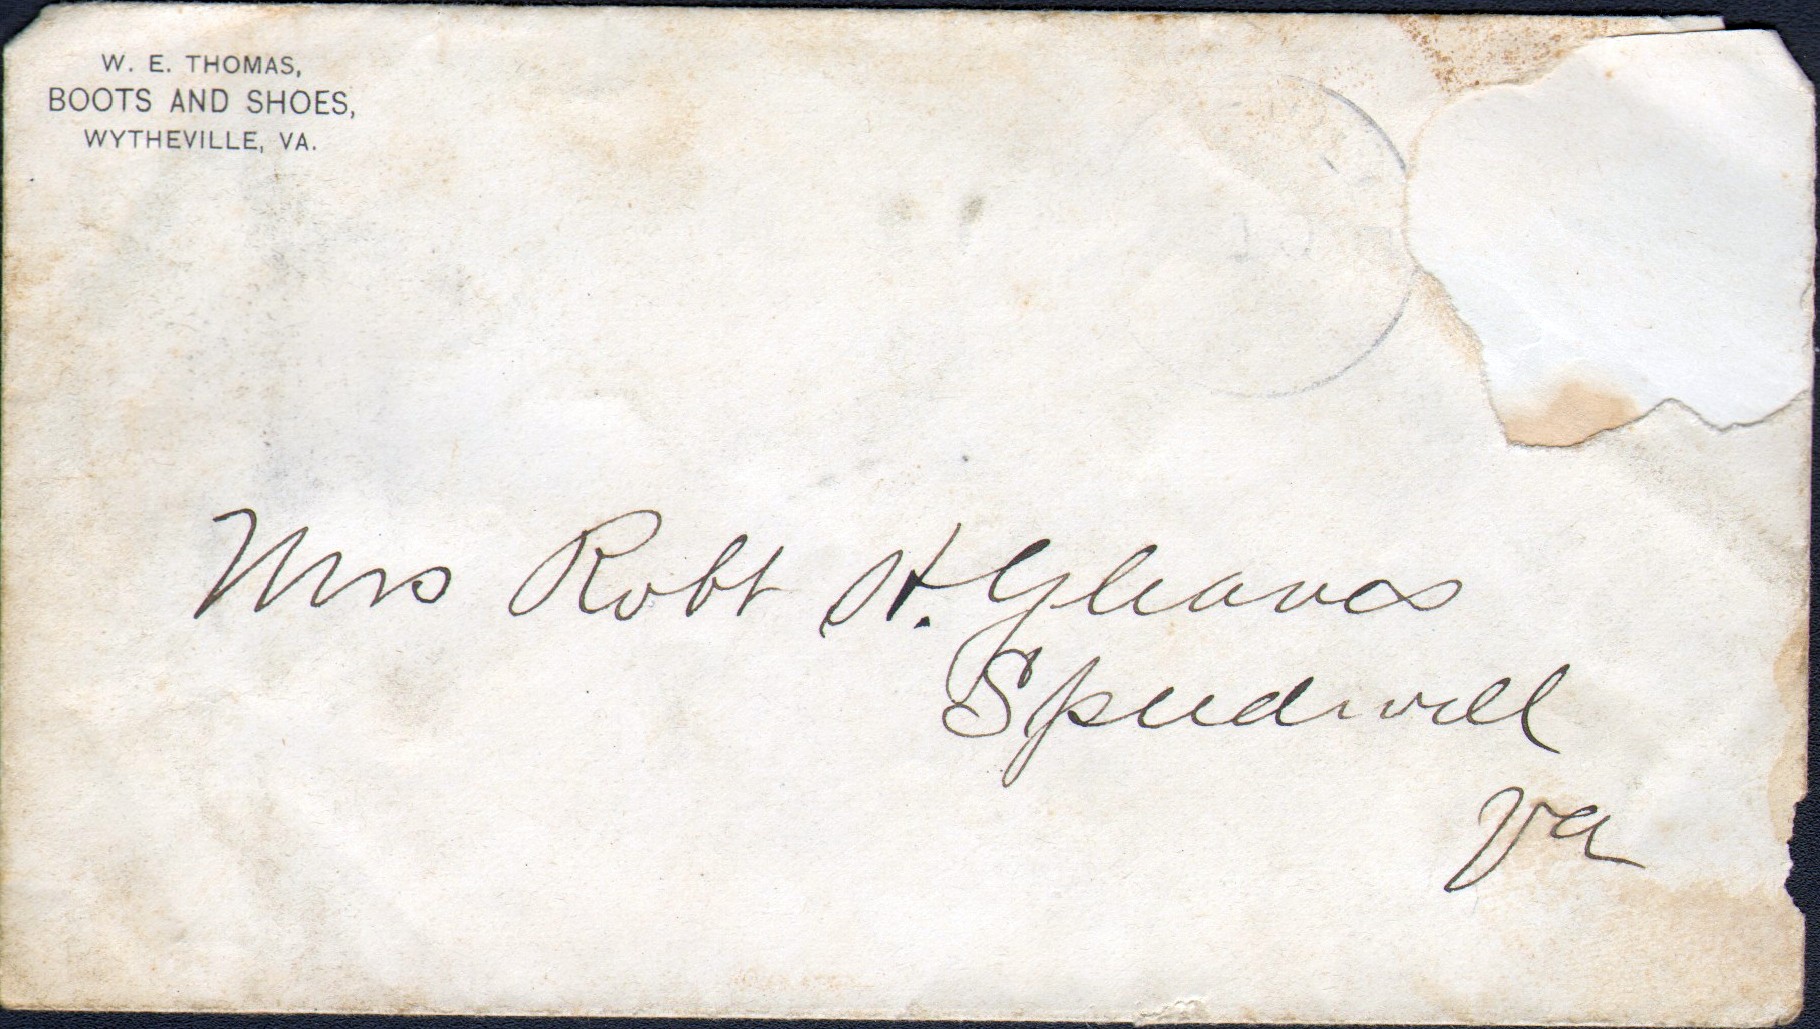 W. E. THOMAS,
BOOTS AND SHOES,
WYTHEVILLE, VA.
Mrs Robt H. Gleaves
Speedwell
Va